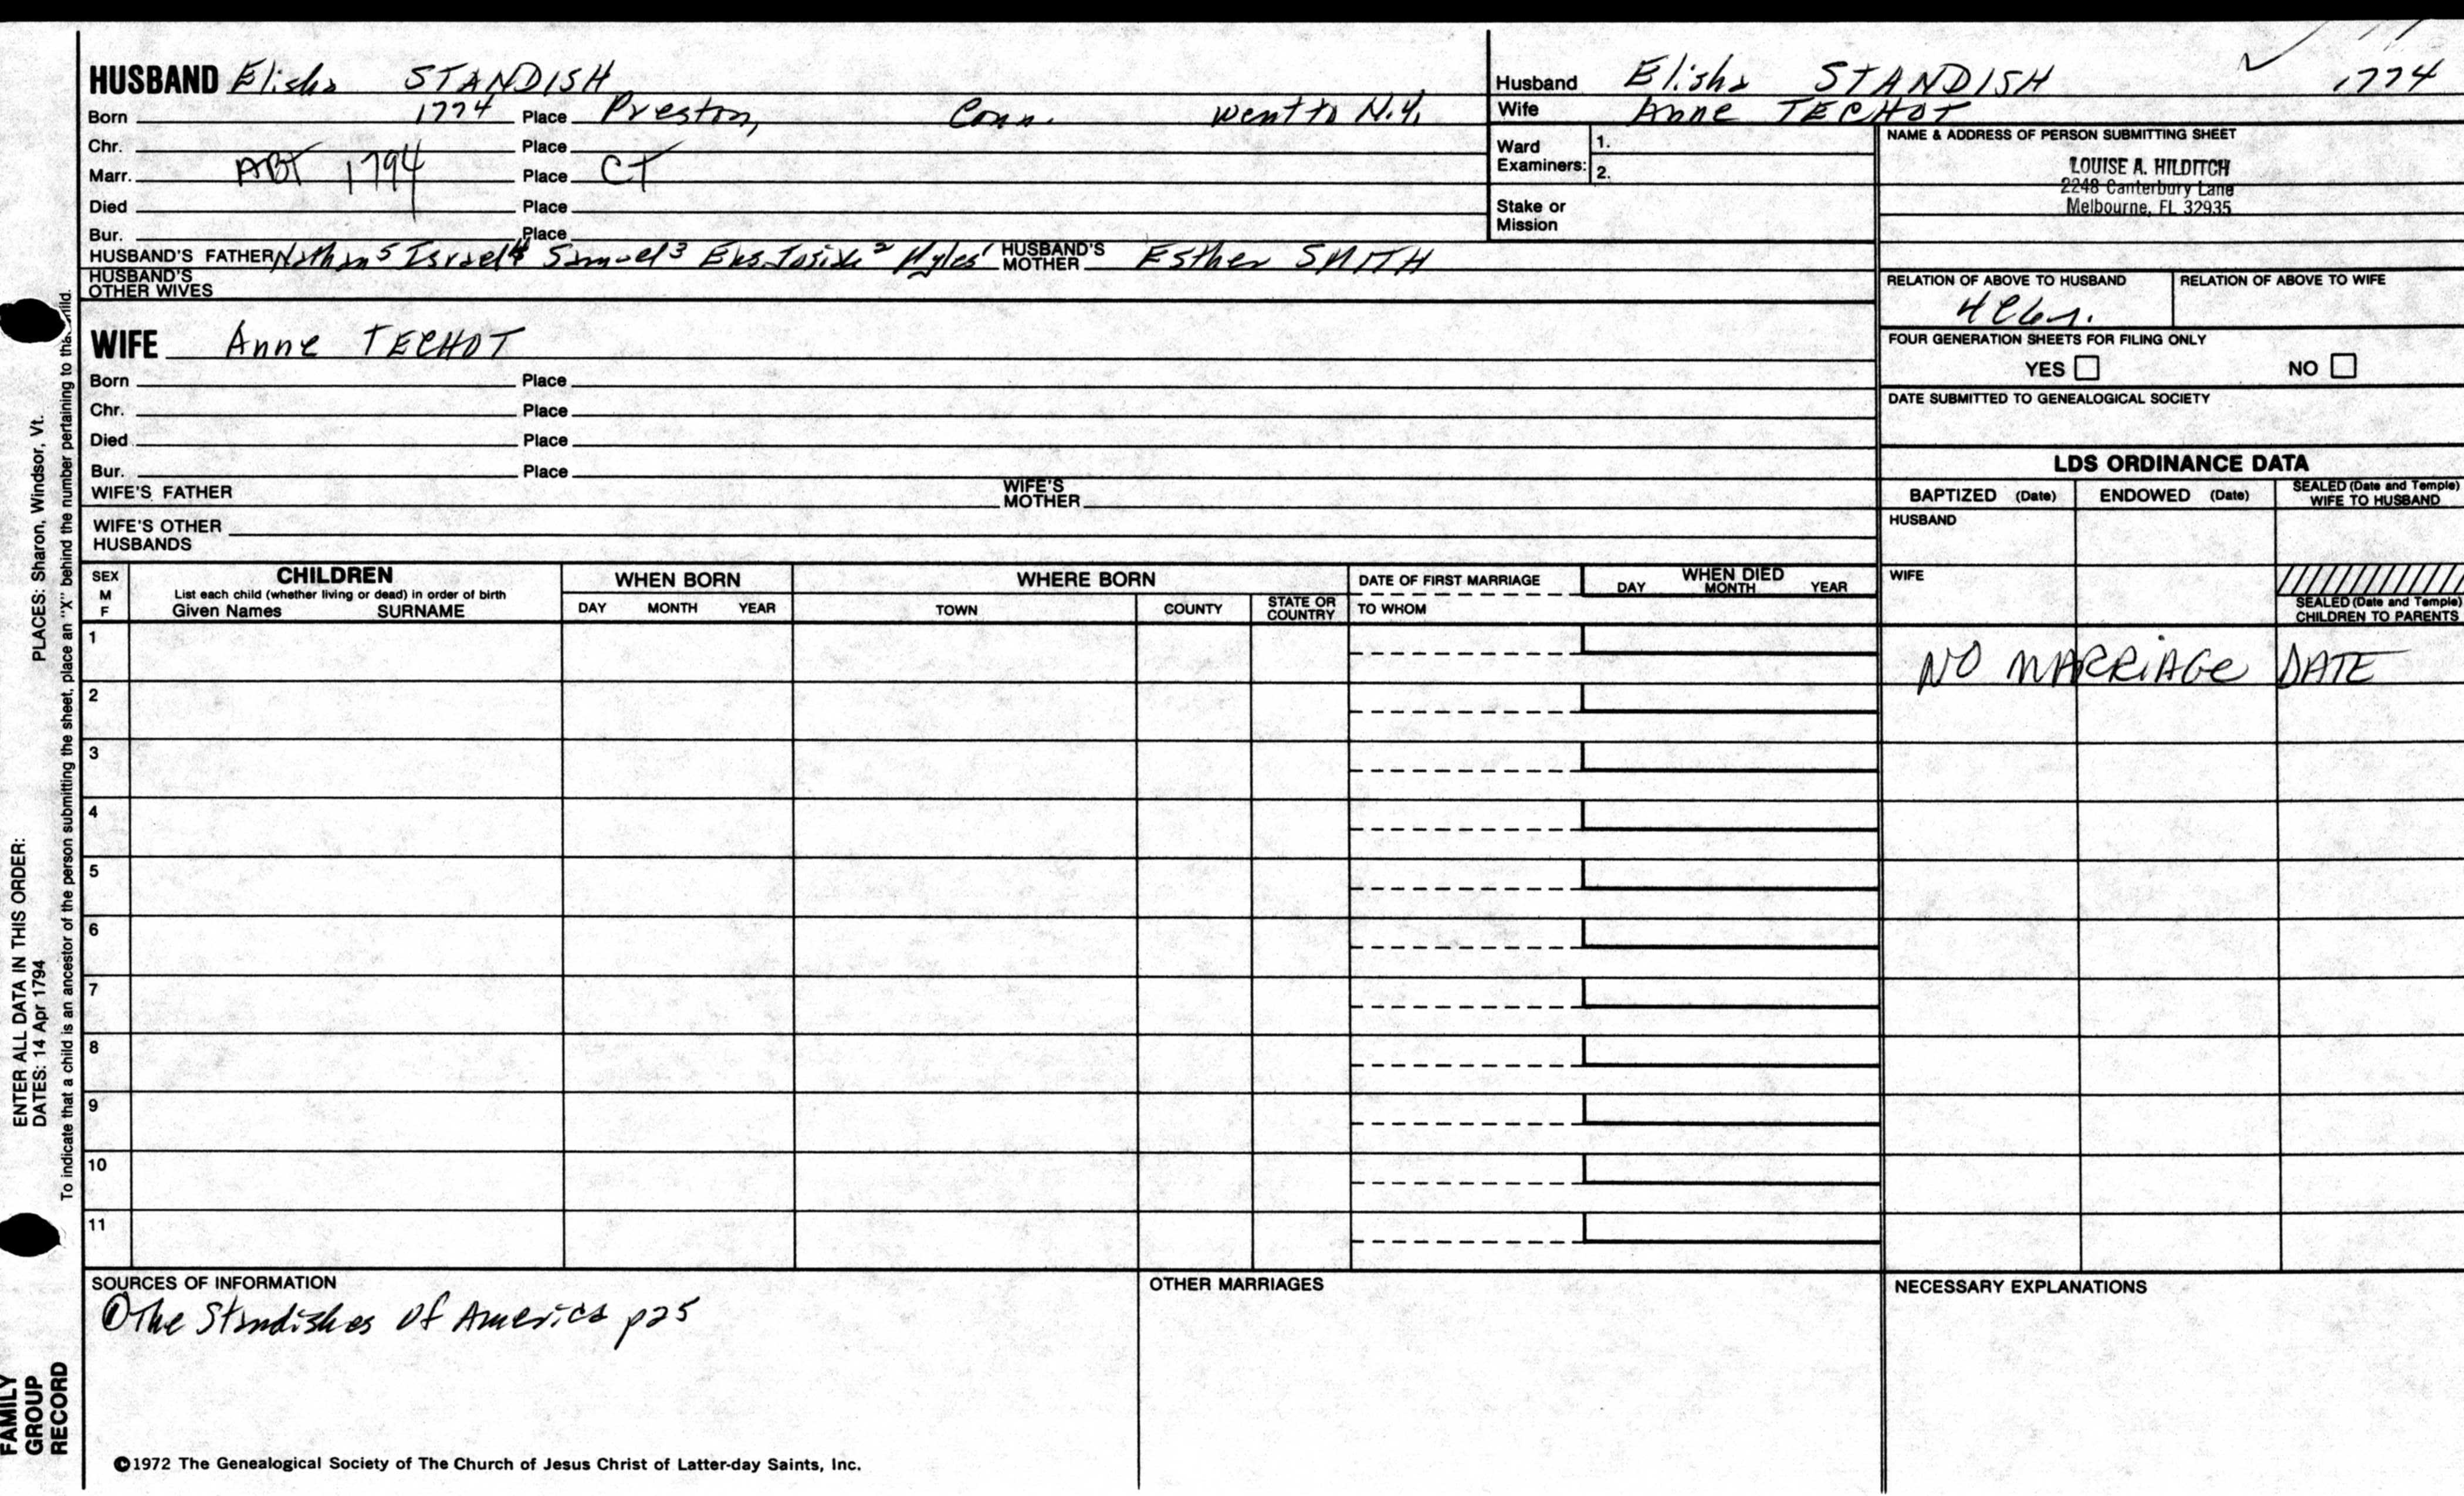 HUSBAND Elisha STANDISH
Born 1774 Place Preston, Conn. went to N.Y.
Chr. Place
Marr. ABT 1794 Place CT
Died Place
Bur. Place
HUSBAND'S FATHER Nathan 5 Israel 4 Samuel 3 Josiah 2 Myles 1 HUSBAND'S MOTHER Esther SMITH
HUSBAND'S OTHER WIVES
WIFE Anne TECHOT
Born Place
Chr. Place
Died Place
Bur. Place
WIFE'S FATHER WIFE'S MOTHER
WIFE'S OTHER HUSBANDS
Husband Elisha STANDISH 1774
Wife Anne TECHOT
Ward Examiners: 1.
2.
Stake or Mission
NAME & ADDRESS OF PERSON SUBMITTING SHEET
LOUISE A. HILDITCH
2248 Canterbury Lane
Melbourne, FL 32935
RELATION OF ABOVE TO HUSBAND RELATION OF ABOVE TO WIFE
FOUR GENERATION SHEETS FOR FILING ONLY
YES NO
DATE SUBMITTED TO GENEALOGICAL SOCIETY
LDS ORDINANCE DATA
BAPTIZED (Date) ENDOWED (Date) SEALED (Date and Temple) WIFE TO HUSBAND
HUSBAND
WIFE
SEALED (Date and Temple) CHILDREN TO PARENTS
NO MARRIAGE DATE
SEX M F CHILDREN WHEN BORN WHERE BORN DATE OF FIRST MARRIAGE WHEN DIED
List each child (whether living or dead) in order of birth
Given Names SURNAME DAY MONTH YEAR TOWN COUNTY STATE OR COUNTRY TO WHOM DAY MONTH YEAR
1
2
3
4
5
6
7
8
9
10
11
SOURCES OF INFORMATION
① The Standishes of America p25
OTHER MARRIAGES
NECESSARY EXPLANATIONS
©1972 The Genealogical Society of The Church of Jesus Christ of Latter-day Saints, Inc.
FAMILY
GROUP
RECORD
ENTER ALL DATA IN THIS ORDER:
DATES: 14 Apr 1794 PLACES: Sharon, Windsor, Vt.
To indicate that a child is an ancestor of the person submitting the sheet, place an "X" behind the number pertaining to that child.